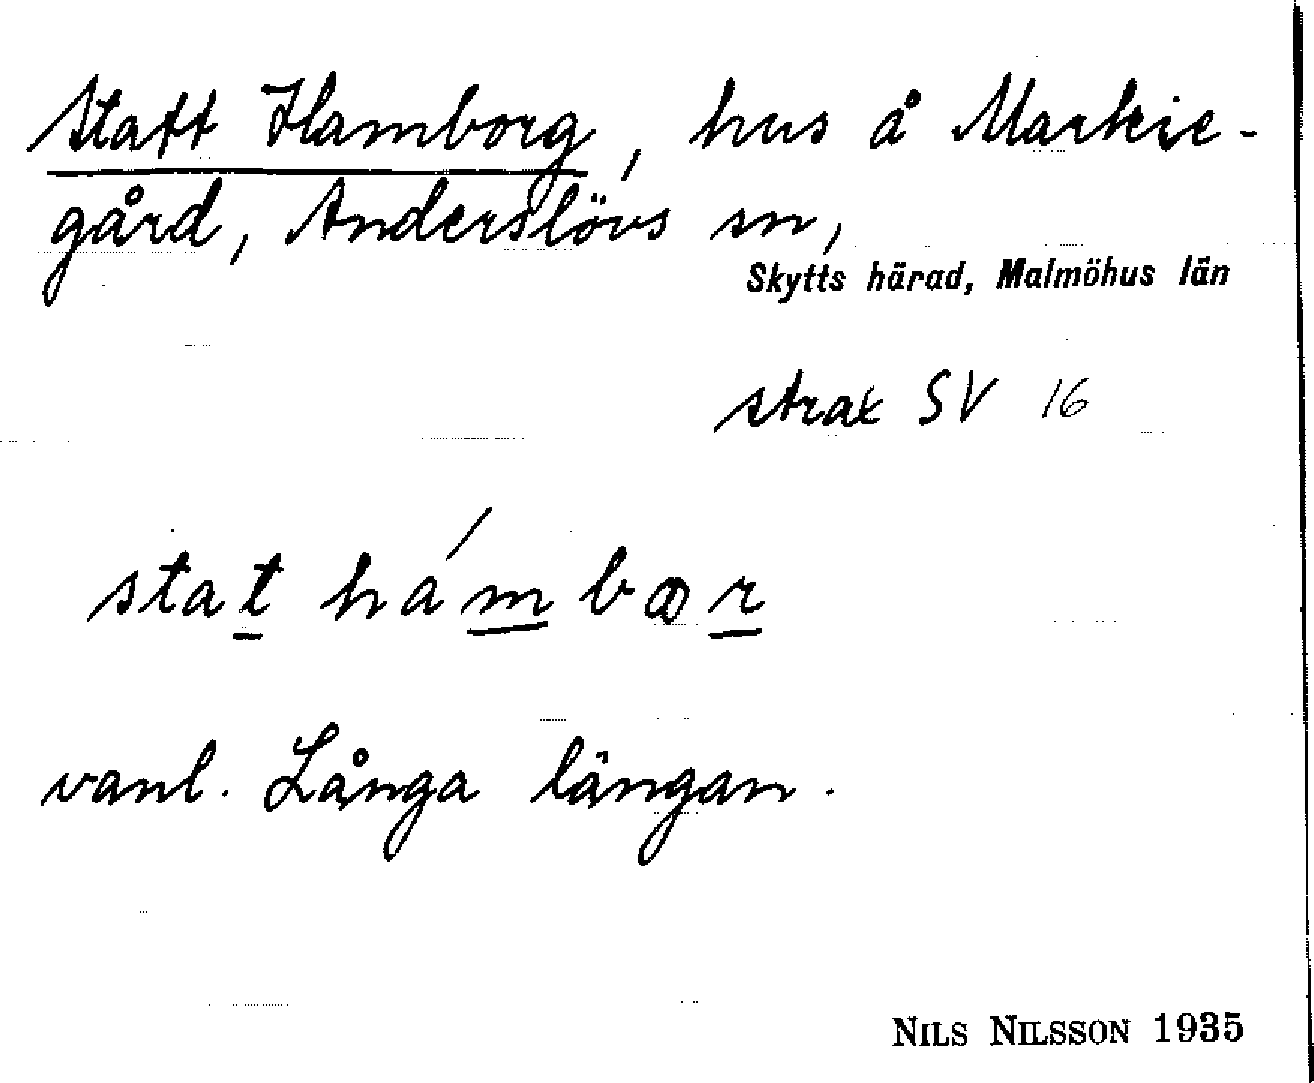 Statt Hamborg, hus å Markie-
gård, Anderslövs sn,
Skytts härad, Malmöhus län
strax SV 16
stat hámbꝏr
vanl. Långa längan.
NILS NILSSON 1935